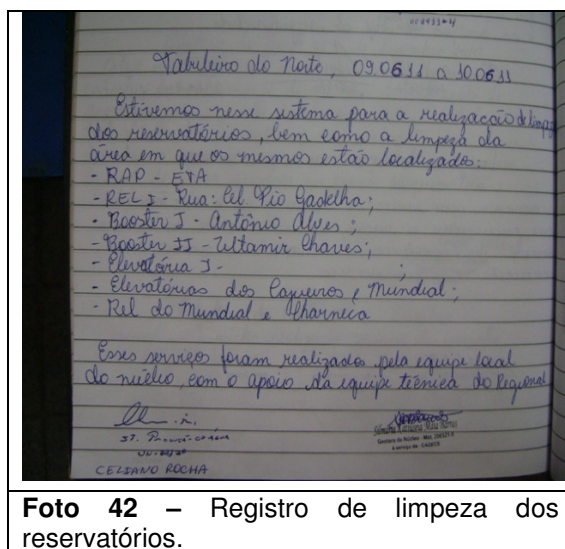 Tabuleiro do Norte, 09.06.11 a 10.06.11
Estivemos nesse sistema para a realização de limpeza
dos reservatórios, bem como a limpeza da
área em que os mesmos estão localizados:
- RAP - ETA
- REL I - Rua: Cel Pio Gadelha;
- Booster I - Antônio Alves;
- Booster II - Ultamir Chaves;
- Elevatória I -
- Elevatórias dos Cajueiros e Mundial;
- Rel do Mundial e Charneca
Esses serviços foram realizados pela equipe local
do núcleo, com o apoio da equipe técnica do Regional
CELIANO ROCHA
Gestora de Núcleo - Mat.
à serviço da CAGECE
Foto 42 – Registro de limpeza dos
reservatórios.